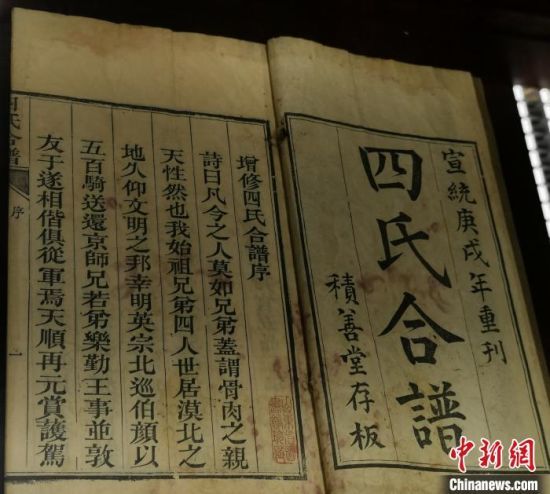 宣統庚戌年重刊
四氏合譜
積善堂存板
增修四氏合譜序
詩曰凡今之人莫如兄弟蓋謂骨肉之親
天性然也我始祖兄弟四人世居漠北之
地久仰文明之邦幸明英宗北巡伯顏以
五百騎送還京師兄若弟樂勤王事並敦
友于遂相偕俱從軍焉天順再元賞護駕
四氏合譜
序
一
中新网
Chinanews.com